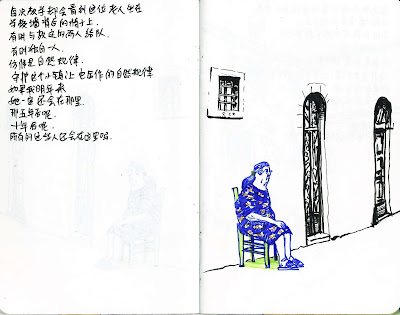 每次放学都会看到这位老人坐在
学校墙背后的椅子上.
有时与 的两人结队.
有时独自一人.
仿佛是自然规律.
守护这个小镇让它 的自然规律.
如果我明年来
她一定还会在那里.
那五年后呢.
十年后呢.
所有的这些人还会在这里吗.